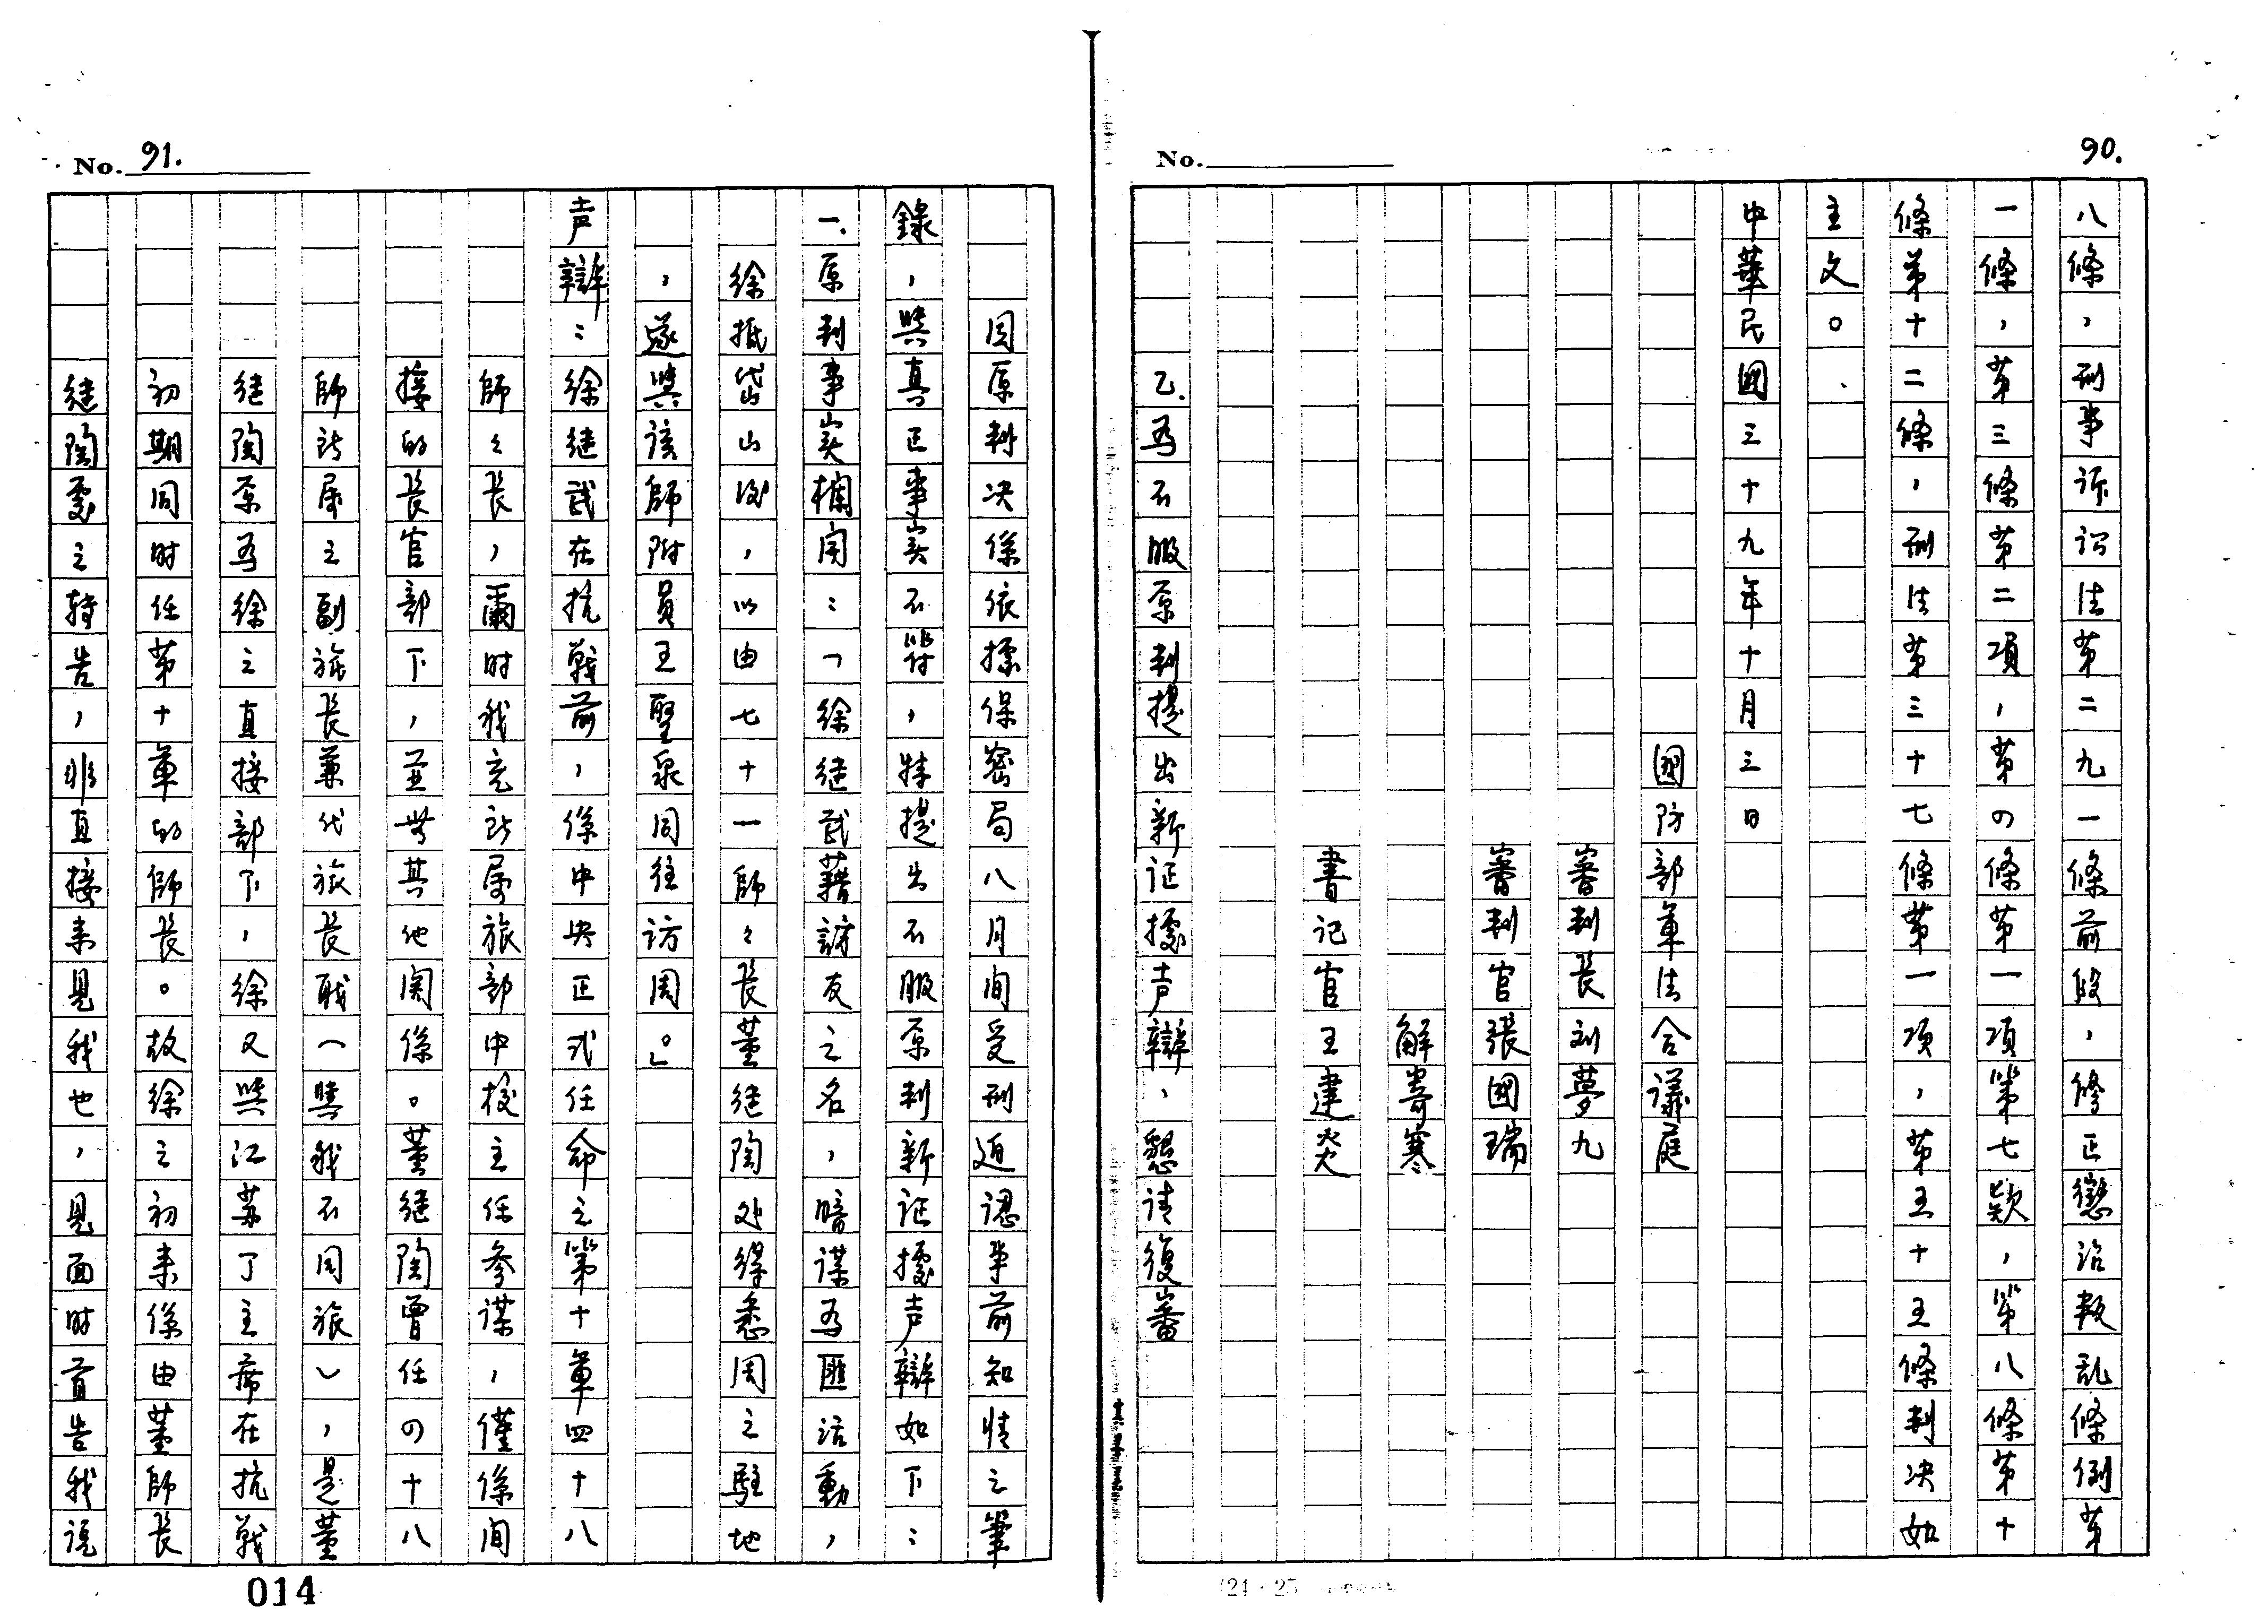 No.
90.
八條，刑事訴訟法第二九一條前段，修正懲治叛乱條例第
一條，第三條第二項，第の條第一項第七款，第八條第十
條第十二條，刑法第三十七條第一項，第五十五條判决如
主文。
中華民國三十九年十月三日
國防部軍法合議庭
審判長刘夢九
審判官張國瑞
解寄寒
書记官王建癸
乙.為不服原判提出新证據声辯，懇请復審
No. 91.
因原判决係依據保密局八月间受刑迫認事前知情之筆
錄，與真正事实不符，特提出不服原判新证據声辯如下：
一.原判事実欄闬：「徐继武藉訪友之名，暗谋為匪活動，
徐抵岱山後，以由七十一師々長董继陶处得悉周之駐地
，遂與該師附員王聖泉同往访周。」
声辯：徐继武在抗戰前，係中央正式任命之第十軍四十八
師々長，爾时我充訴属旅部中校主任参谋，僅係间
接的長官，部下，並無其他関係。董继陶曾任の十八
師訴属之副旅長兼代旅長職（與我不同旅），是董
继陶原為徐之直接部下，徐又與江苏丁主席在抗戰
初期同时任第十軍的師長。故徐之初来係由董師長
继陶處之轉告，非直接来見我也，見面时首告我说
014